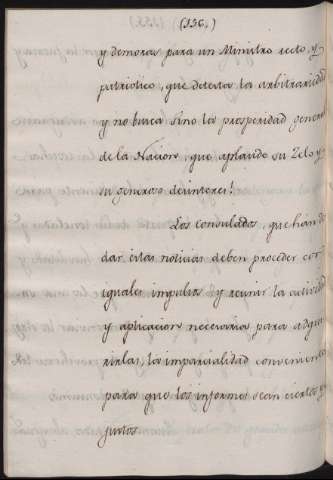 (156.)
y demoras para un Ministro recto, y
patriotico, que detesta la arbitrariedad
y no busca sino la prosperidad general
de la Nacion, que aplaude su Zelo y
su generoso desinteres!
Los Consulados, que han de
dar estas noticias deben proceder con
iguales impulsos y reunir la actividad
y aplicacion necesarias para adqui
rirlas, la imparcialidad conveniente
para que los informes sean ciertos y
justos.